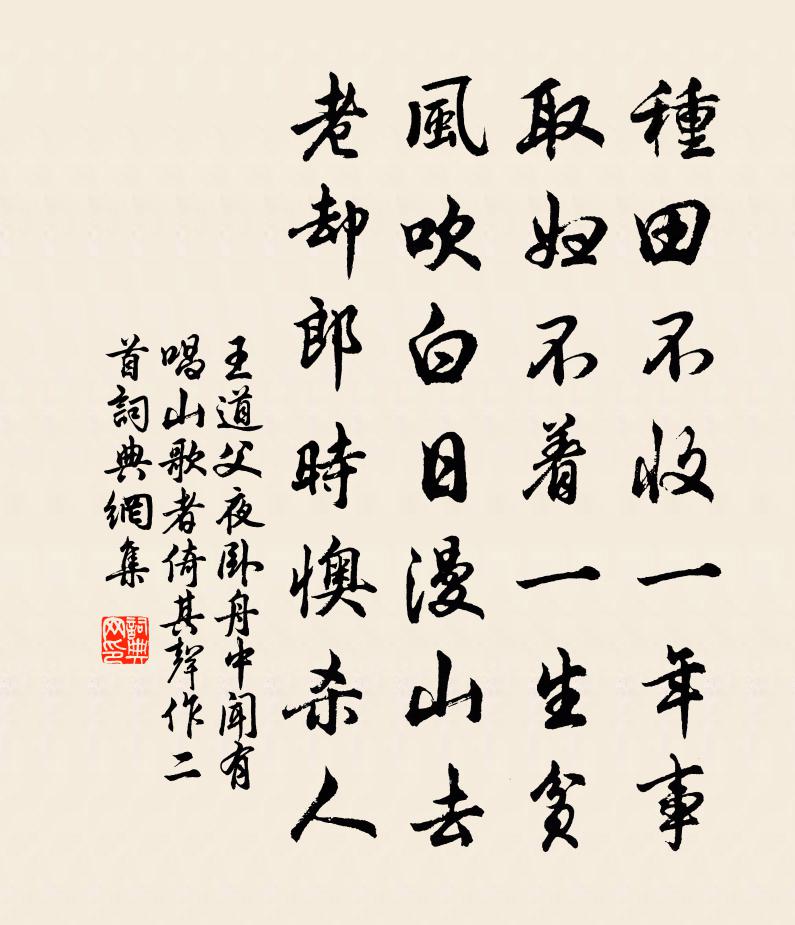 種田不收一年事
取婦不着一生貧
風吹白日漫山去
老却郎時懊杀人
王道父夜卧舟中闻有
唱山歌者倚其聲作二
首詞典網集
詞典网印